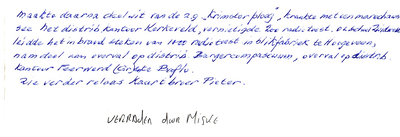 maakte daarna deel uit van de z.g. "Krimster ploeg", kraakte met een marechaus
see het distrib. kantoor Kerkeveld, vernietigde 200 radiotoest.
leidde het in brand steken van 1100 radiotoest in blikfabriek te Hoogeveen,
nam deel aan overval op distrib. Bargercompascuum, overval op distrib.
kantoor Baflo.
Zie verder relaas Kaart broer Pieter.
VERRADEN door MISKE